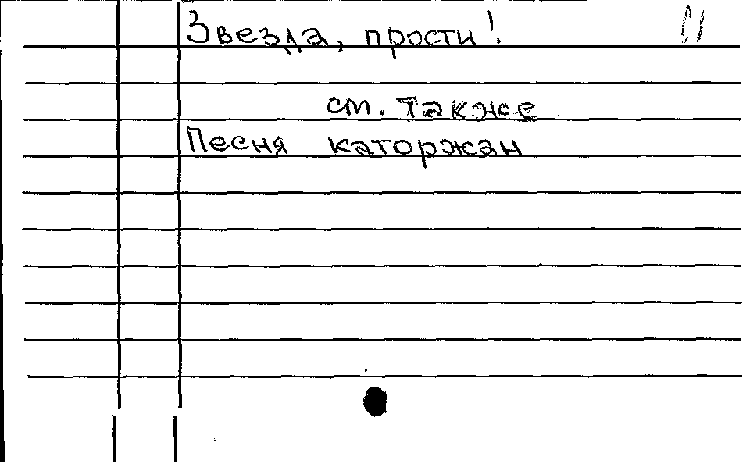 Звезда, прости!
см. также
Песня каторжан